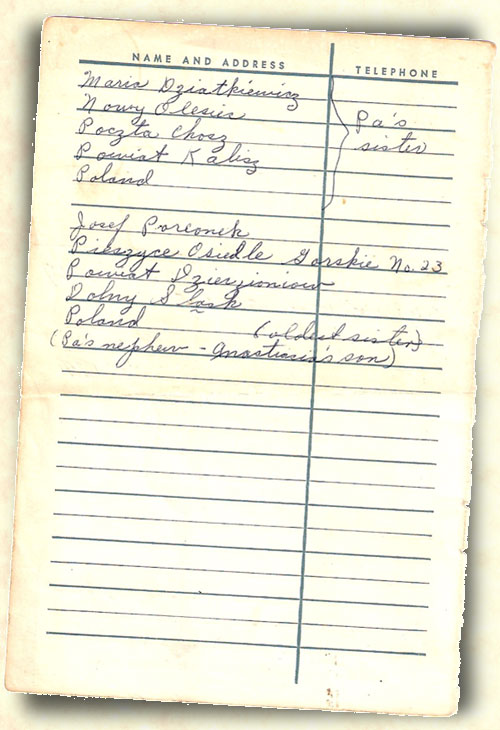 NAME AND ADDRESS TELEPHONE
Maria Dziatkiewicz
Nowy Olesiec
Poczta Chosz
Powiat Kalisz
Poland
Pa's
sister
Josef Porconek
Pieszyce Osiedle Gorskie No. 23
Powiat Dzierzioniow
Dolny Slask
Poland (oldest sister)
(Pa's nephew - Anastasia's son)